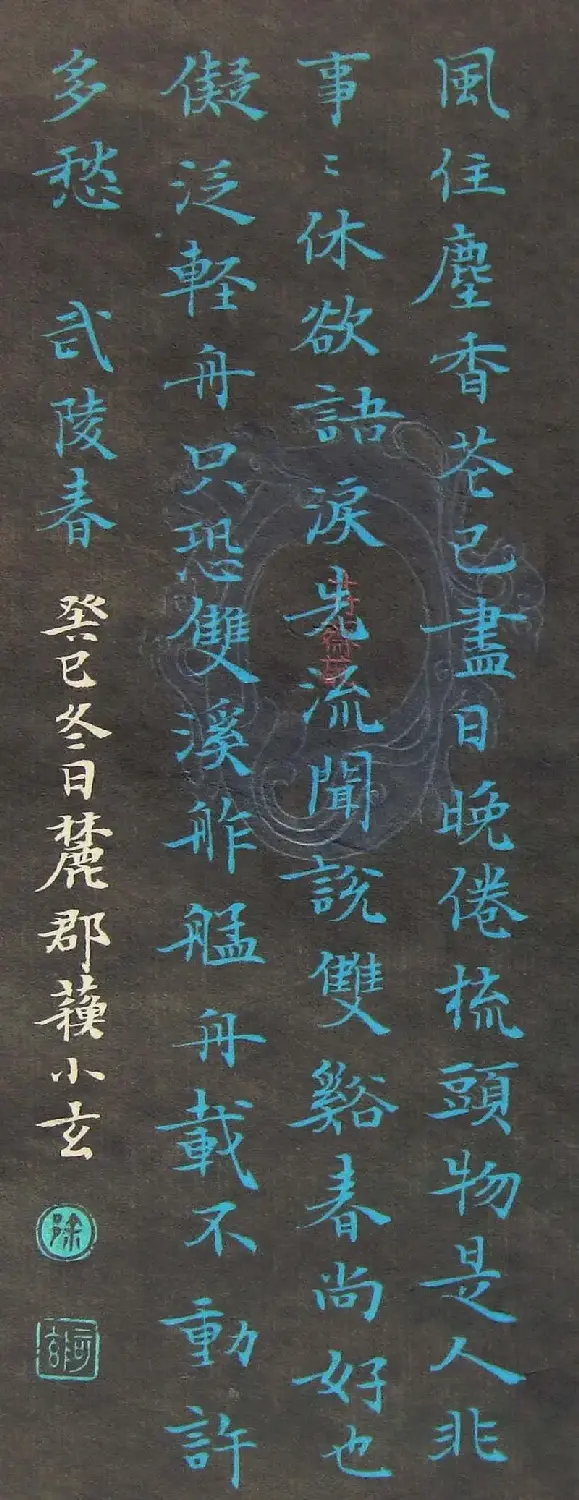 風住塵香花已盡日晚倦梳頭物是人非
事〻休欲語淚先流聞說雙谿春尚好也
儗泛輕舟只恐雙溪舴艋舟載不動許
多愁　武陵春
癸巳冬日麓郡蘋小玄